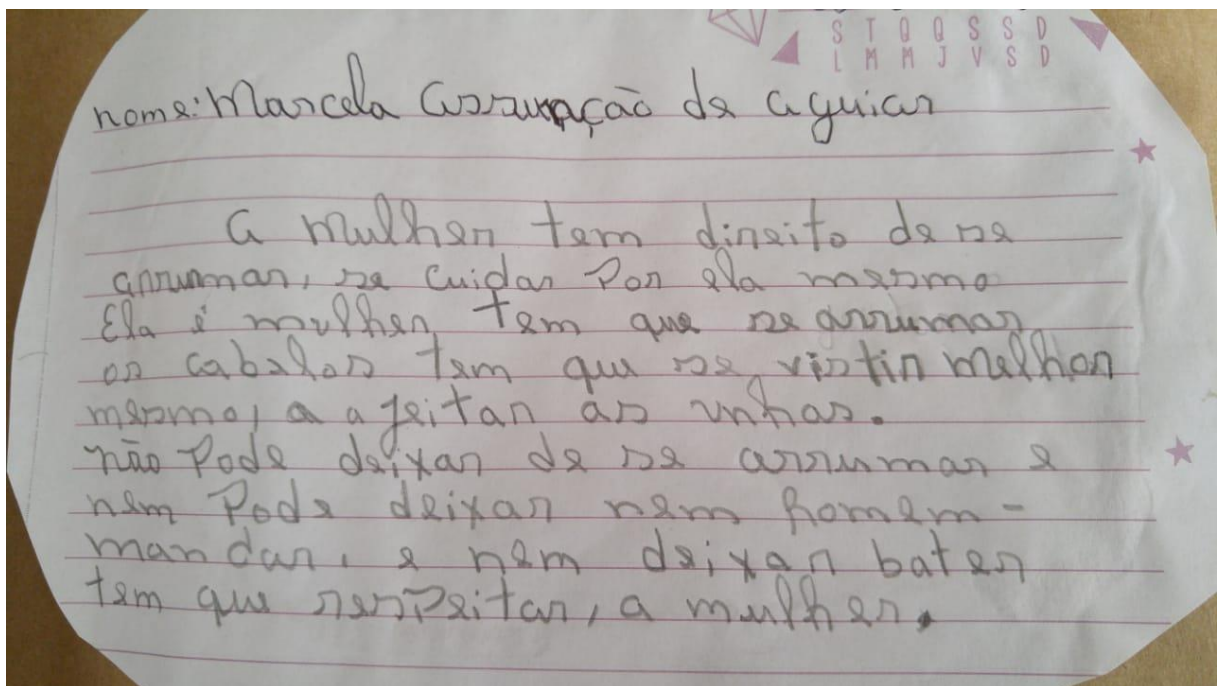 S T Q Q S S D
L M M J V S D
nome: Marcela Assunação de aguiar
A mulher tem direito de se
arrumar, se cuidar Por ela mesmo
Ela é mulher, tem que se arrumar
os cabelos tem que se vistir melhor
mesmo, a ajeitar as unhas.
não Pode deixar de se arrumar e
nem Pode deixar nem homem -
mandar, e nem deixar bater
tem que resPeitar, a mulher.